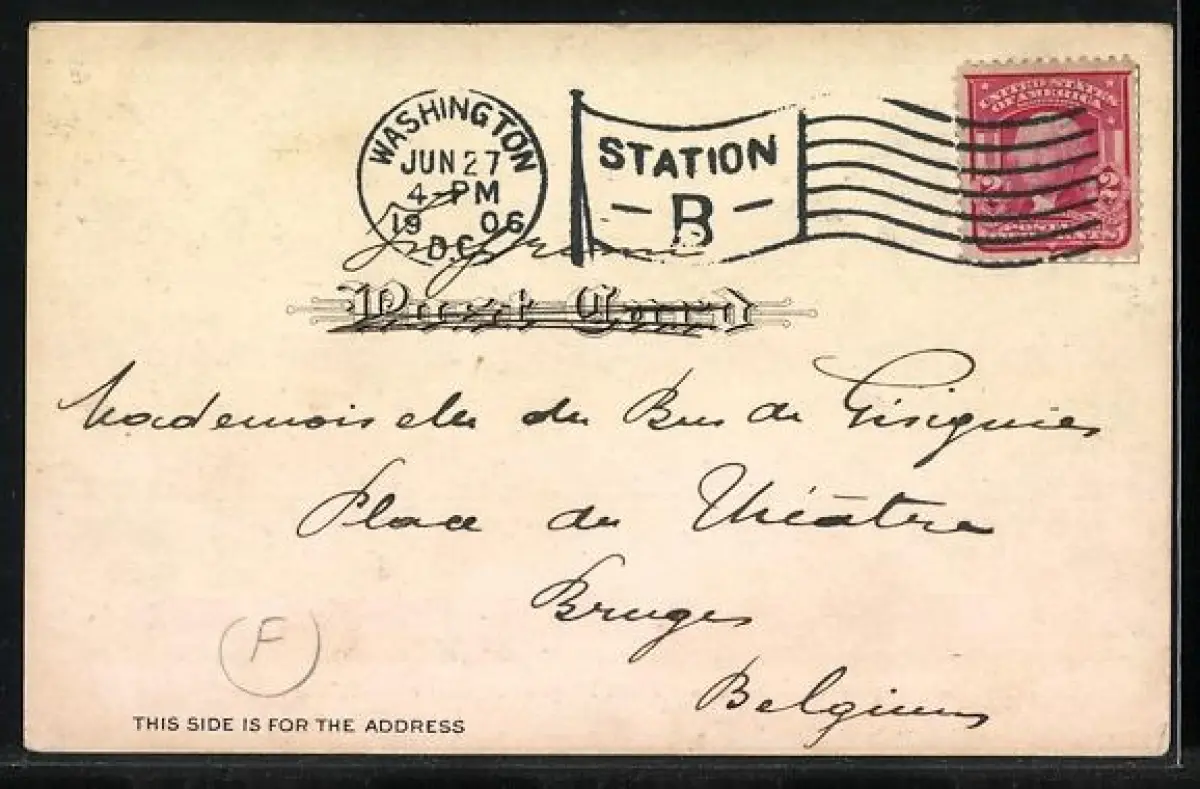 WASHINGTON
JUN 27
4-PM
1906
D.C.
STATION
B
UNITED STATES
OF AMERICA
2 2
Imprimé
Post Card
Mademoiselle du Bus de Gisignies
Place du Théâtre
Bruges
Belgium
F
THIS SIDE IS FOR THE ADDRESS